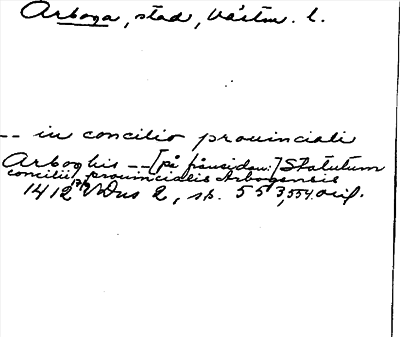 Arboga, stad, Västm. l.
-- in concilio prouinciali
Arboghis -- [på frånsidan:] Statutum
concilii prouincialis Arbogensis
1412 Vidus 2, sp. 553, 554. orig.